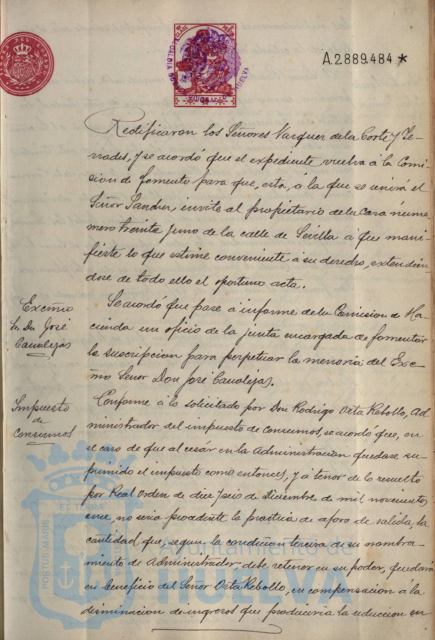 A.2.889.484 *
Rectificaron los Señores Vazquez de la Corte y Te-
rrades, y se acordó que el expediente vuelva á la Comi-
sion de fomento para que, esta, á la que se unirá el
Señor Sanchez, invite al propietario de la casa núme-
mero treinta y uno de la calle de Sevilla á que mani-
fieste lo que estime conveniente á su derecho, extendien-
dose de todo ello el oportuno acta.
Excmo
Sr. Dn. José
Canalejas
Se acordó que pase á informe de la Comision de Ha-
cienda un oficio de la junta encargada de fomentar
la suscripcion para perpetuar la memoria del Exc-
mo Señor Don José Canalejas.
Impuesto
de
Consumos
Conforme á lo solicitado por Don Rodrigo Orta Rebollo, Ad-
ministrador del impuesto de Consumos, se acordó que, en
el caso de que al cesar en la Administracion quedase su-
primido el impuesto como entonces, y á tenor de lo resuelto
por Real Orden de diez y seis de diciembre de mil novecientos
once, no seria procedente la práctica de aforo de salida, la
cantidad que, segun la condicion tercera de su nombra-
miento de Administrador, debe retener en su poder, quedara
en beneficio del Señor Orta Rebollo, en compensacion á la
disminucion de ingresos que produciria la reduccion en
PORTUS MARIS
ET TERRAE
Ayuntamiento de
HUELVA